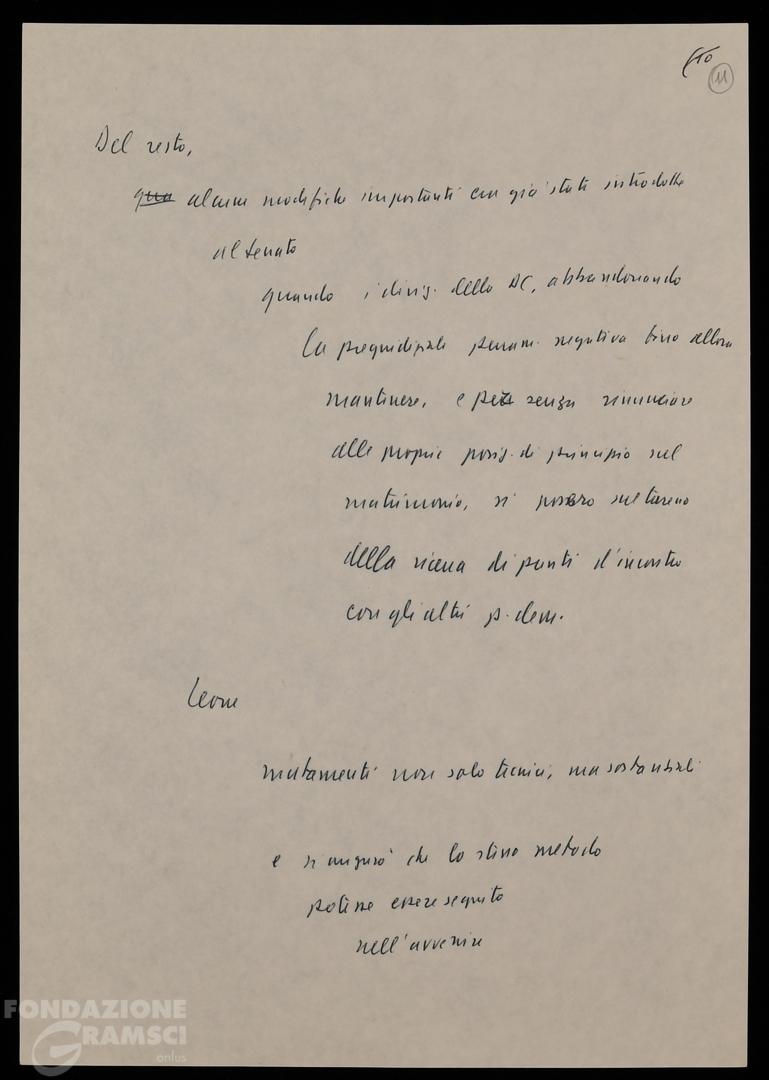 10
11
Del resto,
qua alcune modifiche importanti eran già state introdotte
al Senato
quando i dirig. della DC, abbandonando
la pregiudiziale puram. negativa fino allora
mantenuta, e però senza rinunciare
alle proprie posiz. di principio sul
matrimonio, si posero sul terreno
della ricerca di punti d'incontro
con gli altri p. dem.
Leone
mutamenti non solo tecnici, ma sostanziali
e si augurò che lo stesso metodo
potesse essere seguito
nell'avvenire
FONDAZIONE
GRAMSCI
onlus